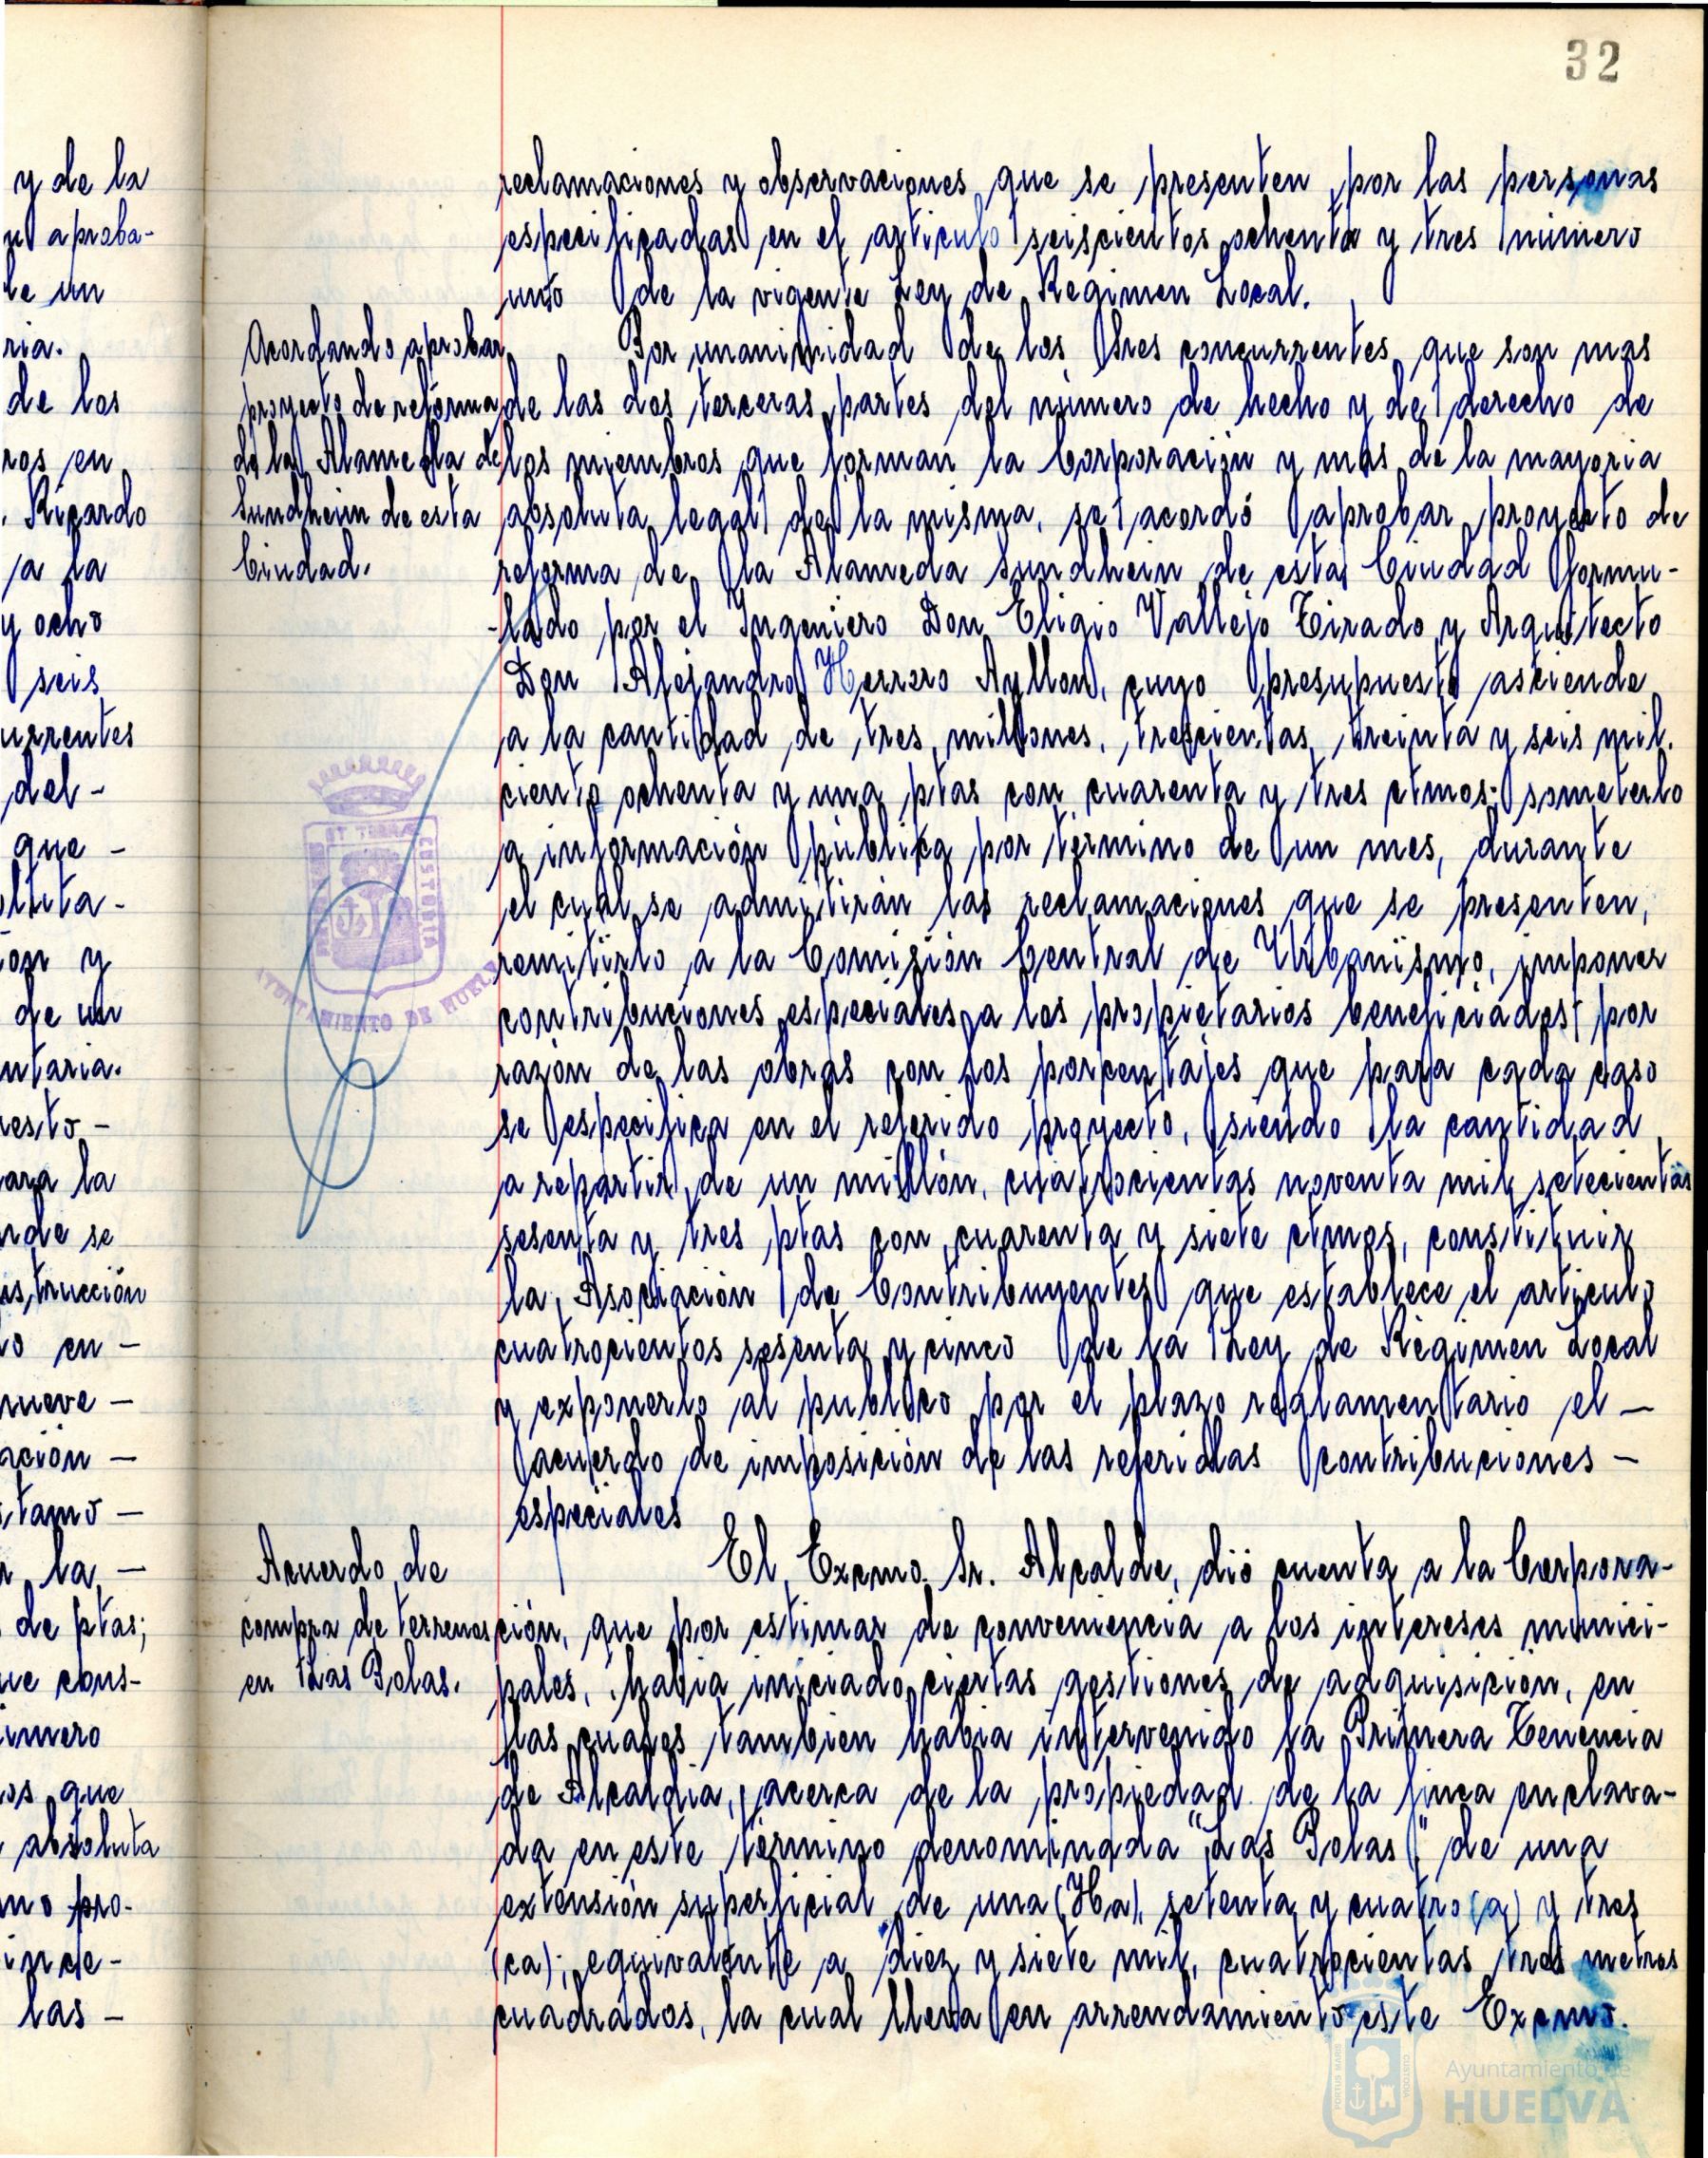 32
y de la
aproba-
de un
ria.
de los
ros en
. Ricardo
a la
y ocho
seis
urrentes
del-
que -
ón y
de un
ntaria.
uesto -
ara la
nde se
strucción
o en -
nueve -
ación -
stamo -
r la -
de ptas;
ue cons-
úmero
os que
absoluta
mo pro-
las -
reclamaciones y observaciones que se presenten por las personas
especificadas en el articulo seiscientos ochenta y tres número
uno de la vigente Ley de Regimen Local.
Acordando aprobar
proyecto de reforma
de la Alameda de
Sundhein de esta
Ciudad.
Por unanimidad de los Sres concurrentes que son mas
de las dos terceras partes del número de hecho y de derecho de
los miembros que forman la Corporación y más de la mayoria
absoluta legal de la misma, se acordó aprobar proyecto de
reforma de la Alameda Sundhein de esta Ciudad formu-
-lado por el Ingeniero Don Eligio Vallejo Tirado y Arquitecto
Don Alejandro Herrero Ayllon, cuyo presupuesto asciende
a la cantidad de tres millones, trescientas treinta y seis mil
ciento ochenta y una ptas con cuarenta y tres ctmos; someterlo
a información pública por término de un mes, durante
el cual se admitirán las reclamaciones que se presenten,
remitirlo a la Comisión Central de Urbanismo, imponer
contribuciones especiales a los propietarios beneficiados por
razón de las obras con los porcentajes que para cada caso
se especifica en el referido proyecto, siendo la cantidad
a repartir de un millón, cuatrocientas noventa mil setecientas
sesenta y tres ptas con cuarenta y siete ctmos, constituir
la Asociación de Contribuyentes que establece el articulo
cuatrocientos sesenta y cinco de la Ley de Régimen Local
y exponerlo al publico por el plazo reglamentario el -
acuerdo de imposición de las referidas contribuciones -
especiales
Acuerdo de
compra de terrenos
en Las Bolas.
El Excmo. Sr. Alcalde, dió cuenta a la Corpora-
ción, que por estimar de conveniencia a los intereses munici-
pales, habia iniciado ciertas gestiones de adquisición, en
las cuales tambien habia intervenido la Primera Tenencia
de Alcaldia, acerca de la propiedad de la finca enclava-
da en este término denominada "Las Bolas" de una
extensión superficial de una (Ha), setenta y cuatro (a) y tres
(ca); equivalente a diez y siete mil, cuatrocientas tres metros
cuadrados, la cual lleva en arrendamiento este Excmo.
AYUNTAMIENTO DE HUELVA
Ayuntamiento de
HUELVA